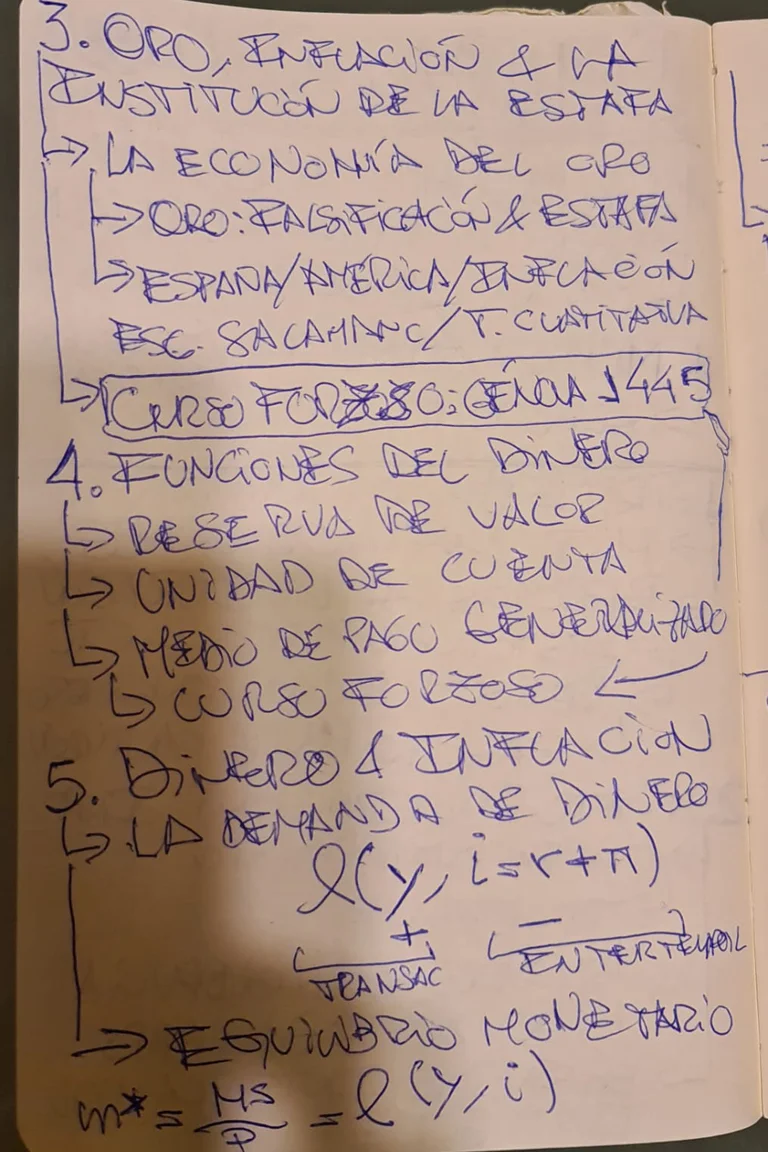 3. ORO, INFLACIÓN & LA
INSTITUCIÓN DE LA ESTAFA
→ LA ECONOMÍA DEL ORO
→ ORO: FALSIFICACIÓN & ESTAFA
→ ESPAÑA/AMÉRICA/INFLACIÓN
ESC. SALAMANC/T. CUATITATIVA
→ CURSO FORZOSO: GÉNOVA 1445
4. FUNCIONES DEL DINERO
→ RESERVA DE VALOR
→ UNIDAD DE CUENTA
→ MEDIO DE PAGO GENERALIZADO
→ CURSO FORZOSO ←
5. DINERO & INFLACIÓN
→ LA DEMANDA DE DINERO
l(y, i=r+π)
+ −
TRANSAC ENTERTEMPORL
→ EQUILIBRIO MONETARIO
m* = MS/P = l(y, i)